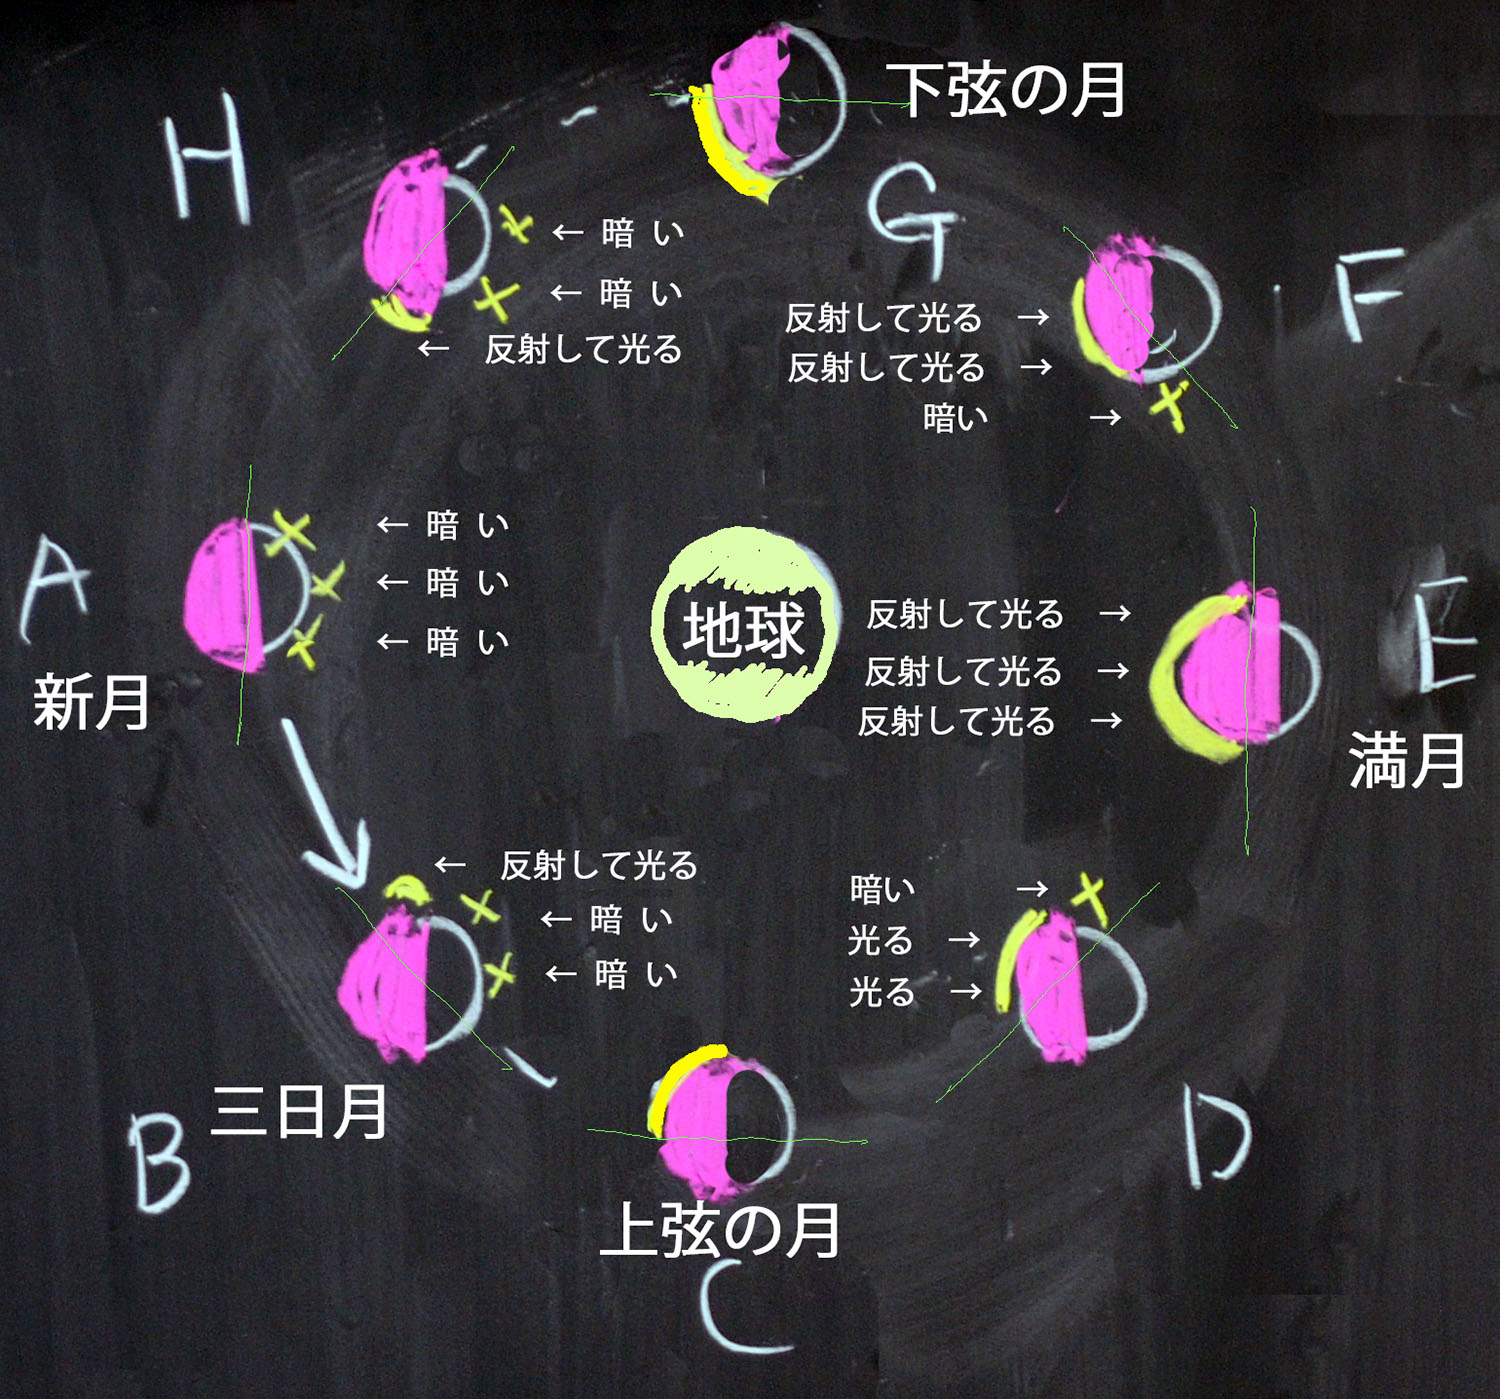 下弦の月
H
G
F
← 暗 い
← 暗 い
← 反射して光る
反射して光る →
反射して光る →
暗い →
A
新月
← 暗 い
← 暗 い
← 暗 い
地球
反射して光る →
反射して光る →
反射して光る →
E
満月
← 反射して光る
← 暗 い
← 暗 い
暗い →
光る →
光る →
三日月
B
D
上弦の月
C